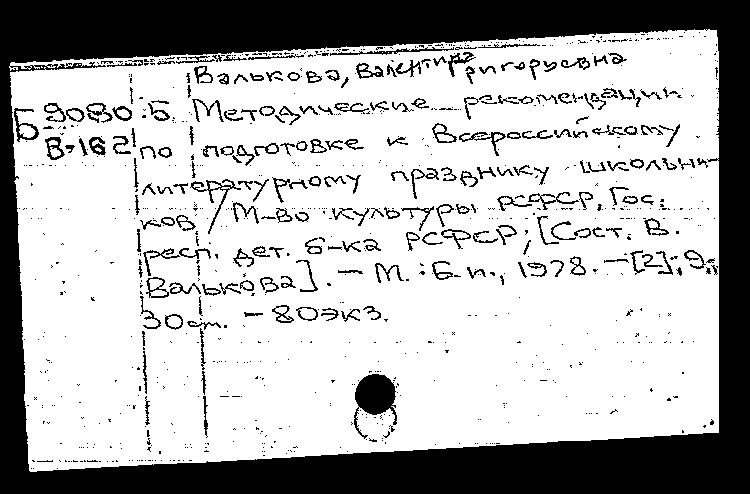 Валькова, Валентина Григорьевна
Б-9080.Б Методические рекомендации
В-162 по подготовке к Всероссийскому
литературному празднику школьни-
ков / М-во культуры РСФСР, Гос.
респ. дет. б-ка РСФСР; [Сост. В.
Валькова]. - М. : Б. и., 1978. - [2]; 9;
30 см. - 80 экз.